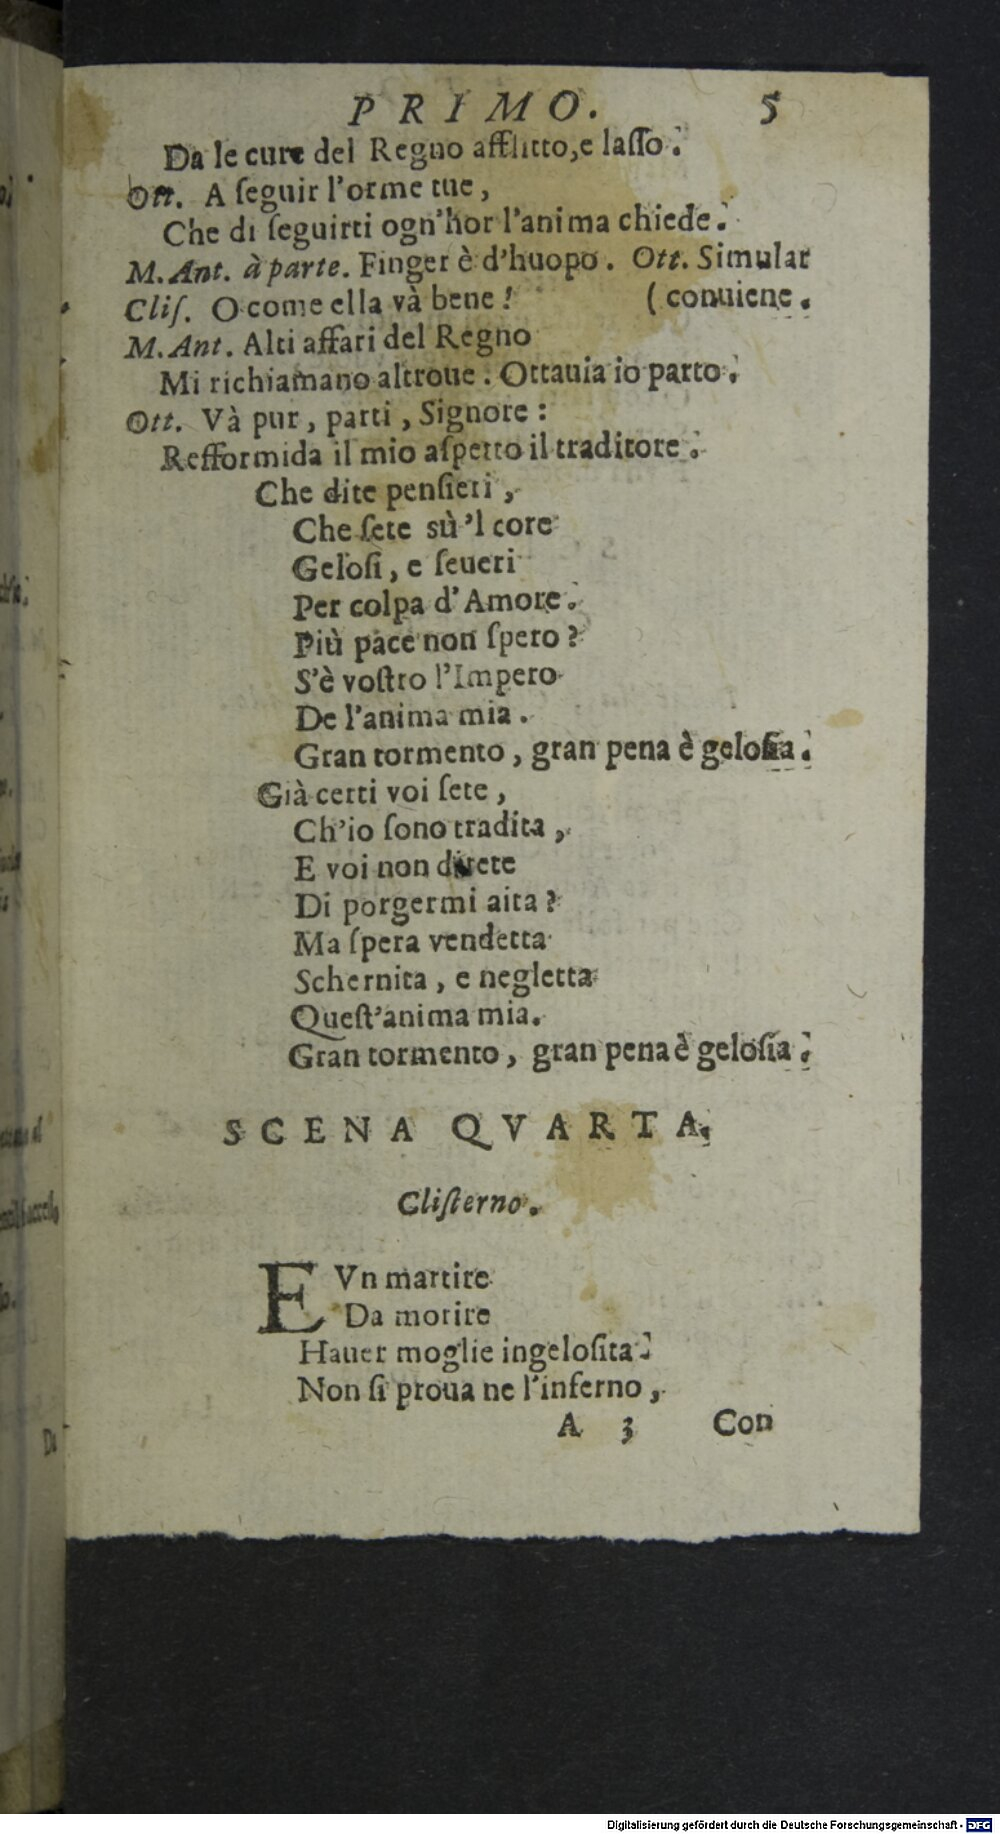 PRIMO. 5
Da le cure del Regno afflitto, e lasso.
Ott. A ſeguir l'orme tue,
Che di ſeguirti ogn'hor l'anima chiede.
M. Ant. à parte. Finger è d'huopo. Ott. Simular
Cliſ. O come ella và bene! (conuiene.
M. Ant. Alti affari del Regno
Mi richiamano altroue. Ottauia io parto.
Ott. Và pur, parti, Signore:
Refformida il mio aſpetto il traditore.
Che dite penſieri,
Che ſete sù 'l core
Geloſi, e ſeueri
Per colpa d'Amore.
Più pace non ſpero?
S'è voſtro l'Impero
De l'anima mia.
Gran tormento, gran pena è geloſia.
Già certi voi ſete,
Ch'io ſono tradita,
E voi non direte
Di porgermi aita?
Ma ſpera vendetta
Schernita, e negletta
Queſt'anima mia.
Gran tormento, gran pena è geloſia.
SCENA QVARTA.
Cliſterno.
E Vn martire
Da morire
Hauer moglie ingeloſita.
Non ſi proua ne l'inferno,
A 3 Con
Digitalisierung gefördert durch die Deutsche Forschungsgemeinschaft - DFG